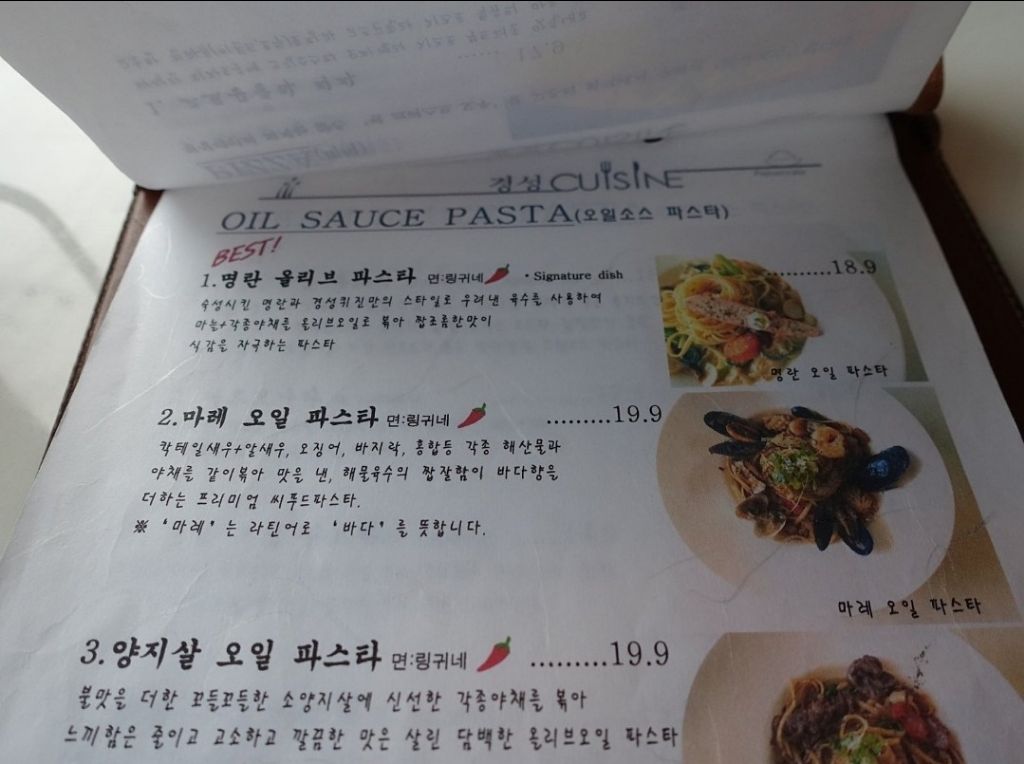 경성 CUISINE
OIL SAUCE PASTA(오일소스 파스타)
BEST!
1.명란 올리브 파스타 면:링귀네 • Signature dish ..........18.9
숙성시킨 명란과 경성퀴진만의 스타일로 우려낸 육수를 사용하여
마늘+각종야채를 올리브오일로 볶아 짭조름한맛이
식감을 자극하는 파스타
명란 오일 파스타
2.마레 오일 파스타 면:링귀네 .........19.9
칵테일새우+알새우, 오징어, 바지락, 홍합등 각종 해산물과
야채를 같이볶아 맛을 낸, 해물육수의 짭잘함이 바다향을
더하는 프리미엄 씨푸드파스타.
※ '마레' 는 라틴어로 '바다' 를 뜻합니다.
마레 오일 파스타
3.양지살 오일 파스타 면:링귀네 .........19.9
불맛을 더한 꼬들꼬들한 소양지살에 신선한 각종야채를 볶아
느끼함은 줄이고 고소하고 깔끔한 맛은 살린 담백한 올리브오일 파스타